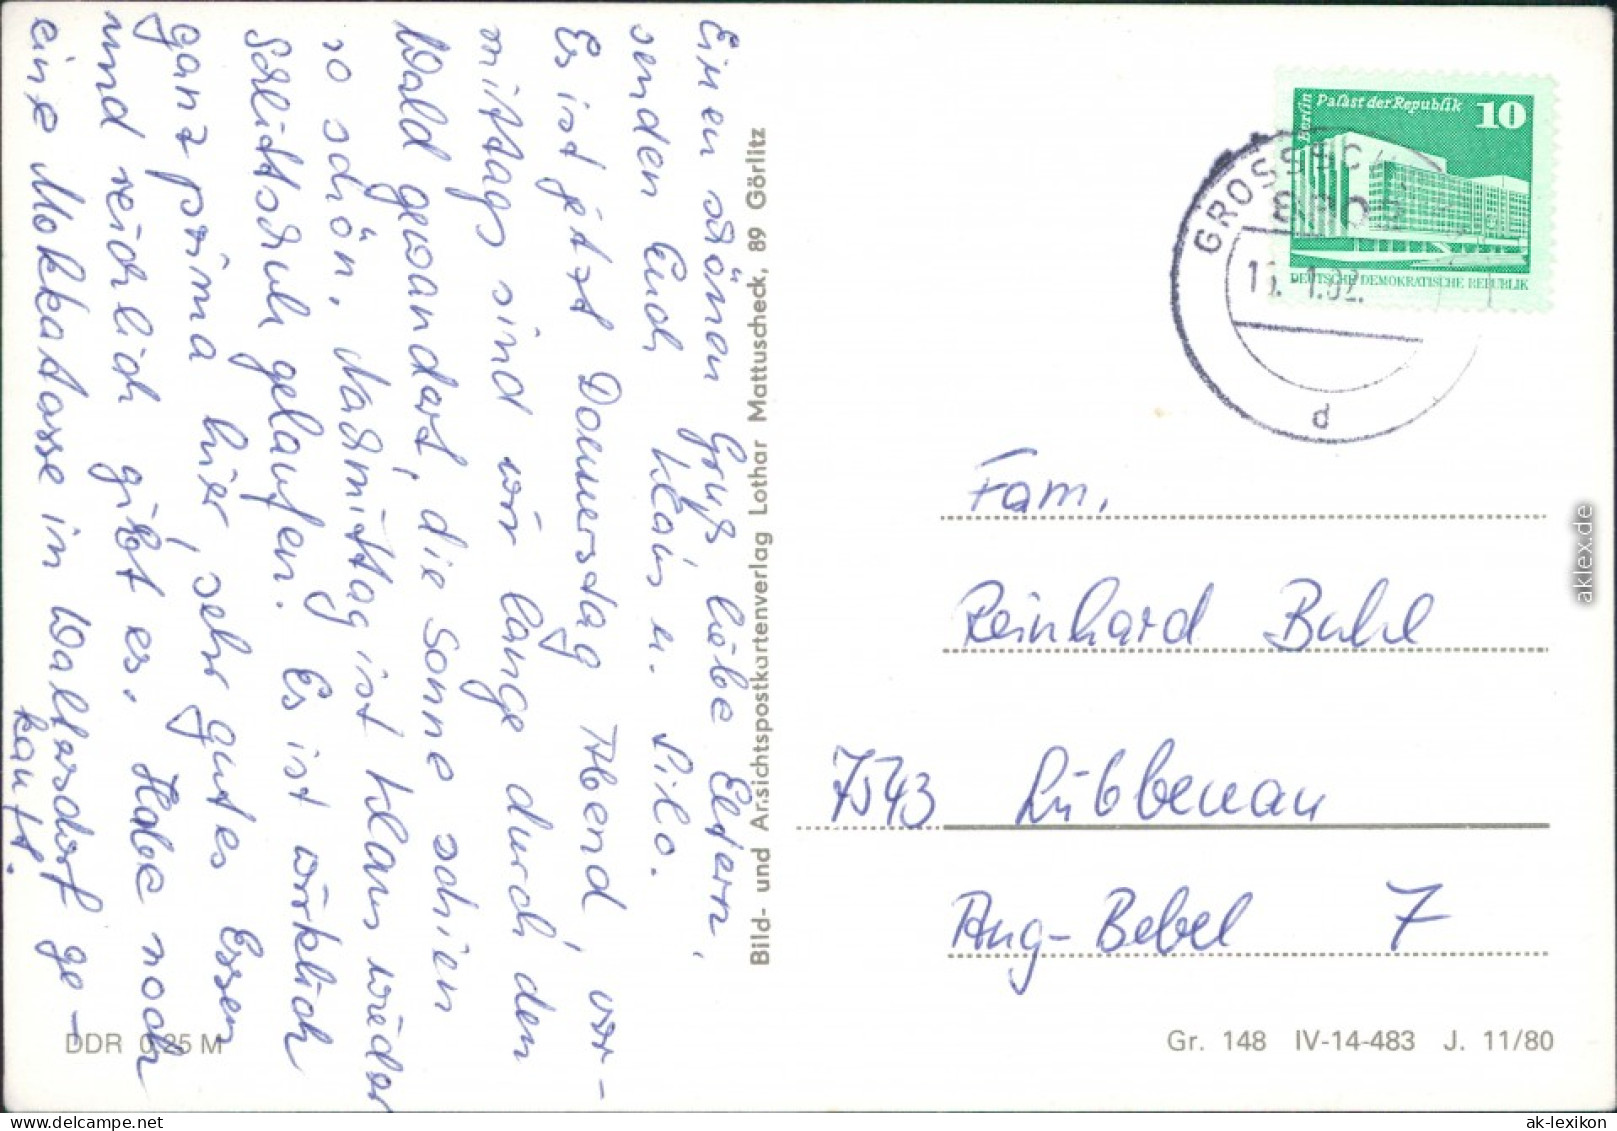 Einen schönen Gruß liebe Eltern,
senden Euch Klaus u. Silo.
Es ist jetzt Donnerstag Abend, vor-
mittags sind wir lange durch den
Wald gewandert, die Sonne schien
so schön. Nachmittag ist Klaus wieder
Schlittschuh gelaufen. Es ist wirklich
ganz prima hier, sehr gutes Essen
und reichlich gibt es. Habe noch
eine Mokkatasse in Waltersdorf ge-
kauft.
Bild- und Ansichtspostkartenverlag Lothar Mattuscheck, 89 Görlitz
DDR 0,25 M
Berlin
Palast der Republik 10
DEUTSCHE DEMOKRATISCHE REPUBLIK
GROSSSC
1.82.
d
Fam.
Reinhard Buhl
7543 Lübbenau
Aug-Bebel 7
Gr. 148 IV-14-483 J. 11/80
aklex.de
www.delcampe.net
ak-lexikon